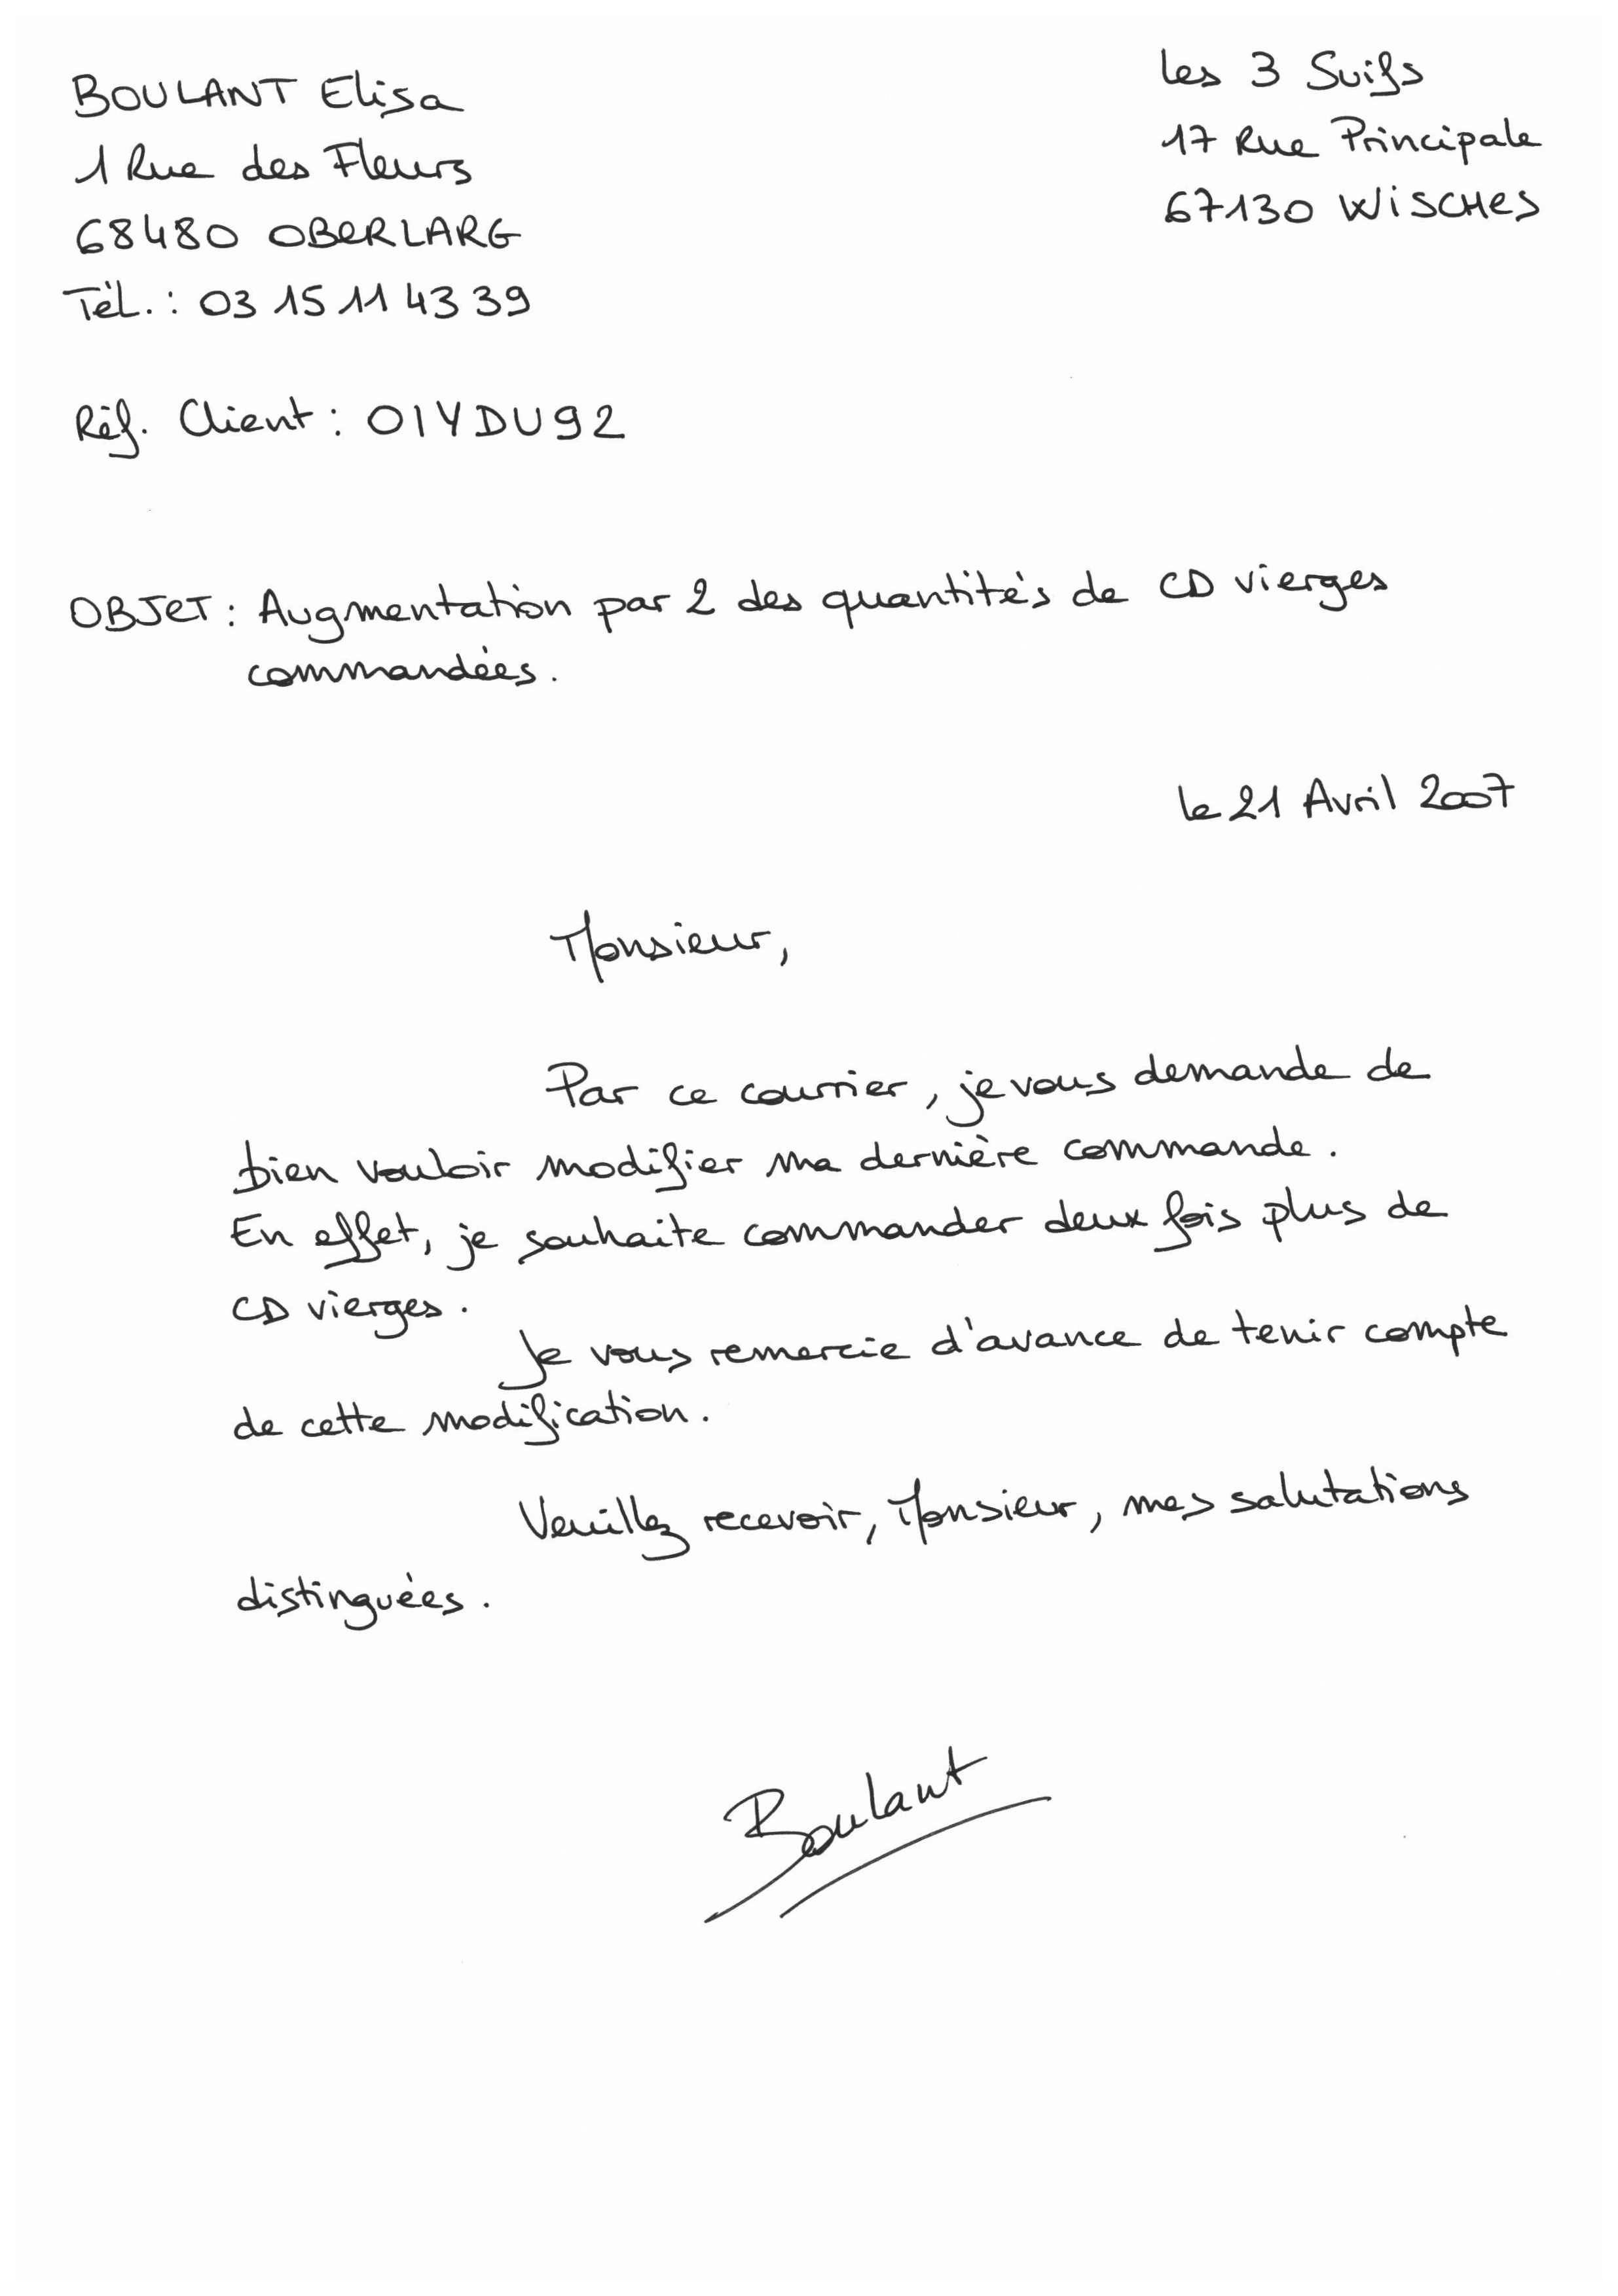 BOULANT Elisa
1 Rue des Fleurs
68480 OBERLARG
Tél. : 03 15 11 43 39
les 3 Suifs
17 Rue Principale
67130 WISCHES
Réf. Client : OIYDU92
OBJET : Augmentation par 2 des quantités de CD vierges
commandées.
le 21 Avril 2007
Monsieur,
Par ce courrier, je vous demande de
bien vouloir modifier ma dernière commande.
En effet, je souhaite commander deux fois plus de
CD vierges.
Je vous remercie d'avance de tenir compte
de cette modification.
Veuillez recevoir, Monsieur, mes salutations
distinguées.
Boulant